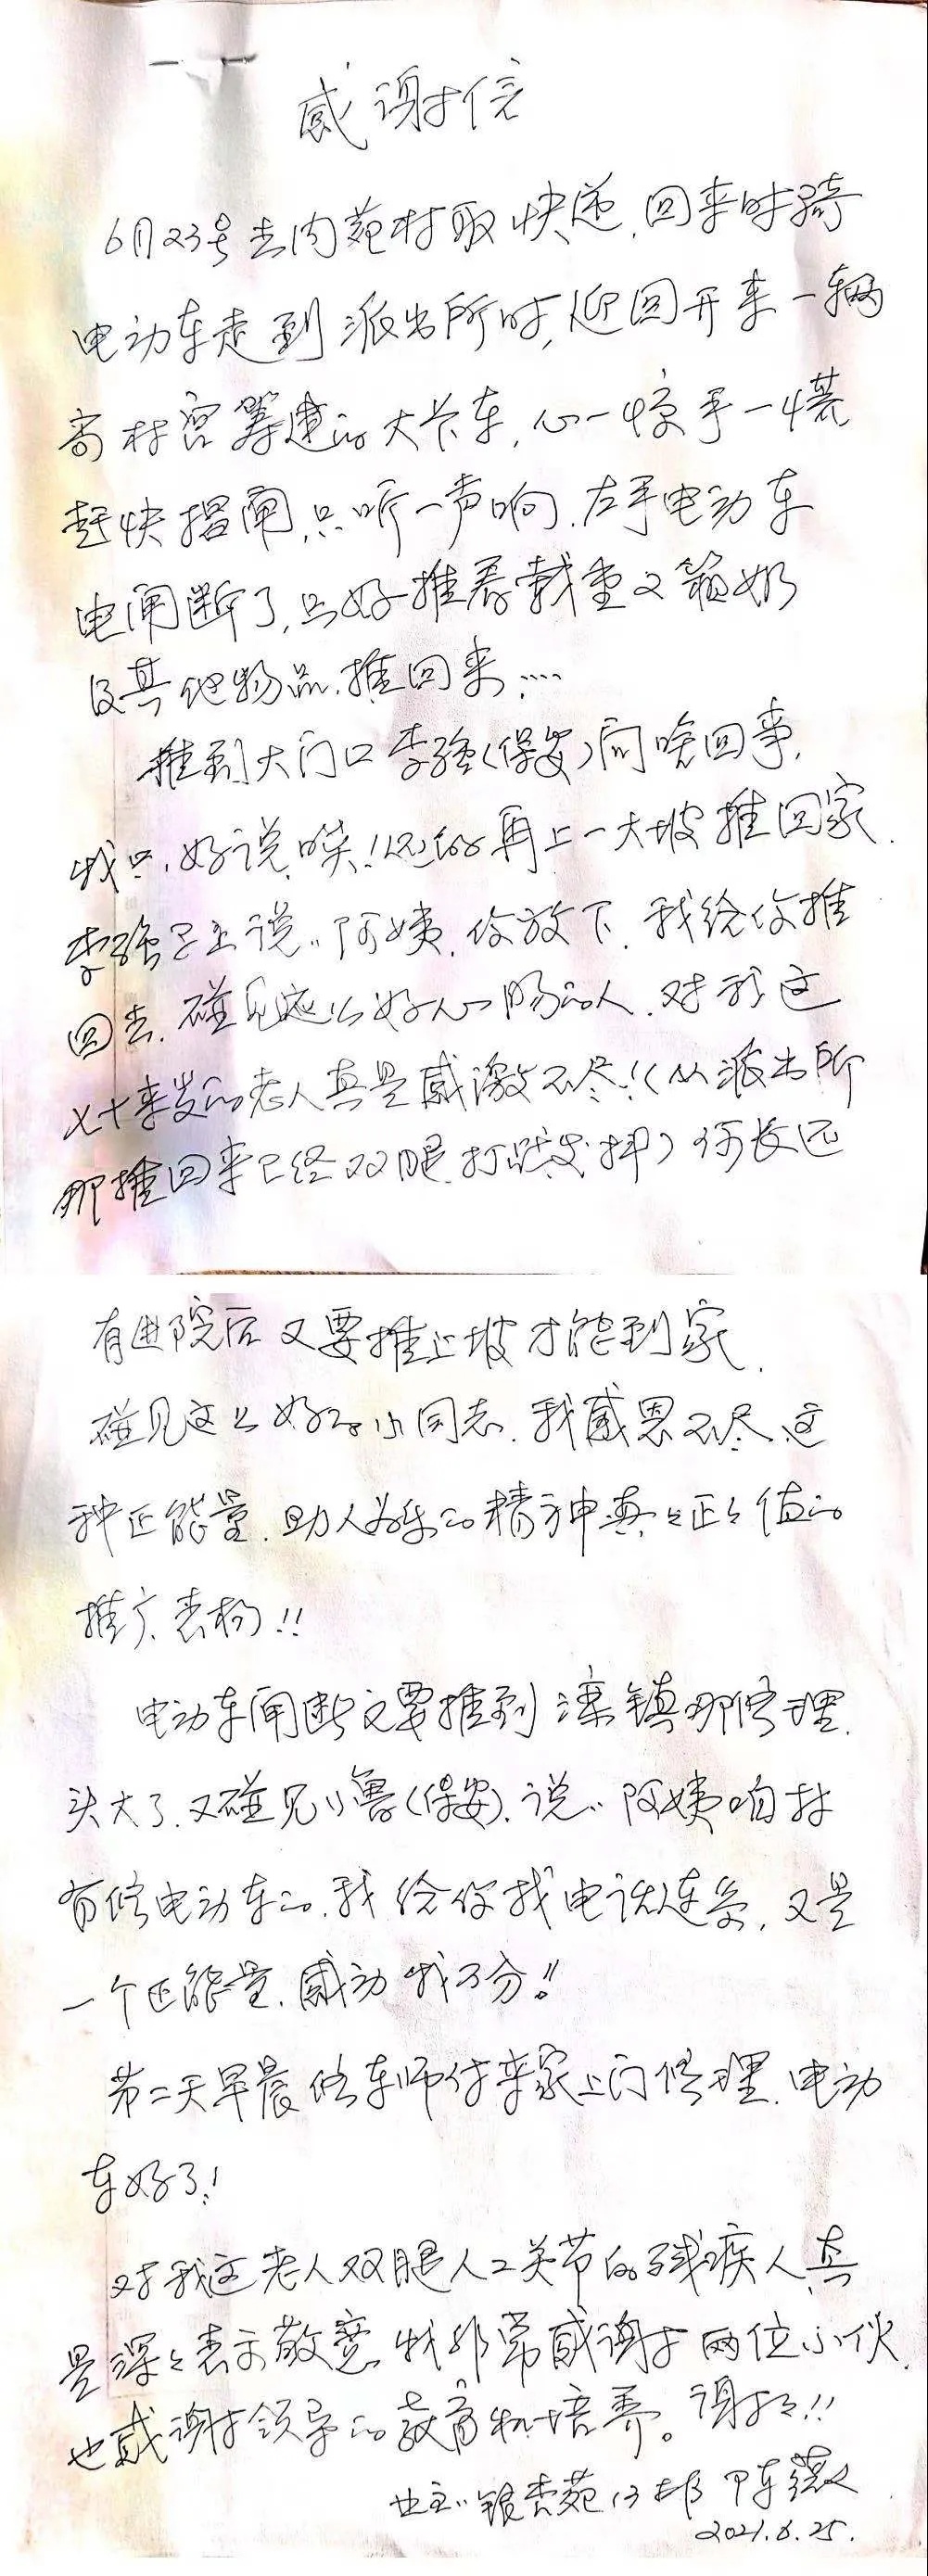 感谢信
6月23号去内苑村取快递,回来时骑
电动车走到派出所时,迎面开来一辆
高村宫筹建的大卡车,心一惊手一慌
赶快捏闸,只听一声响,左手电动车
电闸断了,只好推着载重又箱奶
及其他物品,推回来,....
推到大门口李强(保安)问啥回事,
我只好说,唉!还的再上一大坡推回家.
李强马上说:阿姨,你放下,我给你推
回去,碰见这么好心肠的人,对我这
七十来岁的老人真是感激不尽!(从派出所
那推回来已经双腿打发抖)何长还
有进院后又要推上坡才能到家.
碰见这么好的小同志,我感恩不尽,这
种正能量,助人为乐的精神真々正々值的
推广表杨!!
电动车闸断又要推到滦镇那修理,
头大了,又碰见小鲁(保安),说:阿姨咱村
有修电动车的,我给你找电话连系,又是
一个正能量,感动我万分!!
第二天早晨修车师付来家上门修理,电动
车好了!
对我这老人双腿人工关节的残疾人真
是深々表示敬意,我非常感谢两位小伙,
也感谢领导的教育和培养。谢谢!!
业主:银杏苑
2021.6.25.